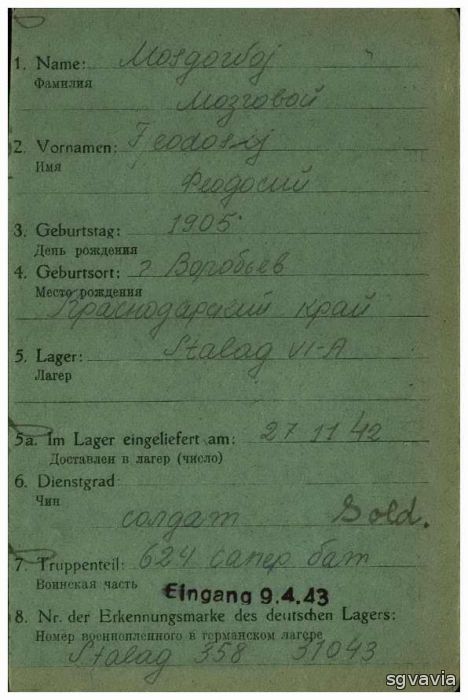 1. Name: Mosgowoj
Фамилия
Мозговой
2. Vornamen: Feodosij
Имя
Феодосий
3. Geburtstag: 1905
День рождения
4. Geburtsort: г Воробьев
Место рождения
Краснодарский край
5. Lager: Stalag VI-A
Лагер
5a. Im Lager eingeliefert am: 27 11 42
Доставлен в лагер (число)
6. Dienstgrad
Чин
солдат Sold.
7. Truppenteil: 624 сапер бат
Воинская часть
Eingang 9.4.43
8. Nr. der Erkennungsmarke des deutschen Lagers:
Номер военнопленного в германском лагере
Stalag 358 31043
sgvavia